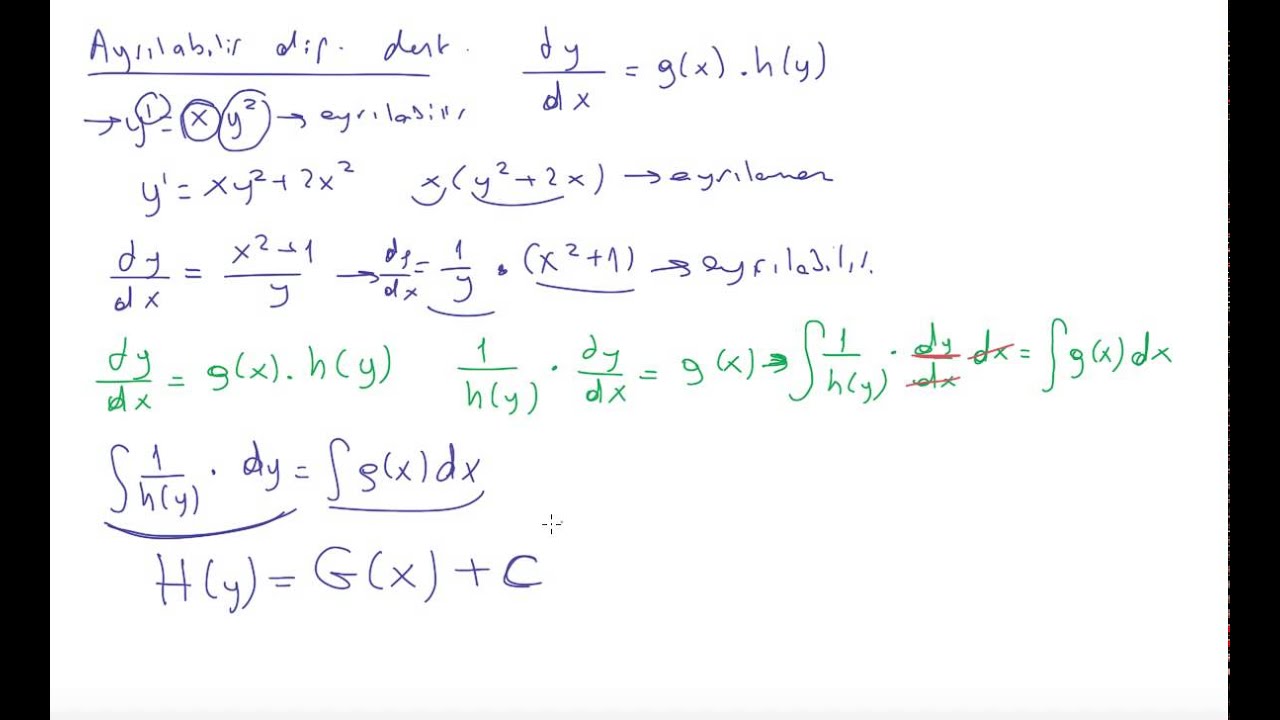 Ayrılabilir dif. denk. dy/dx = g(x) . h(y)
→ y' = x y² → ayrılabilir
y' = xy² + 2x² x(y² + 2x) → ayrılamaz
dy/dx = x² + 1/y → dy/dx = 1/y . (x² + 1) → ayrılabilir.
dy/dx = g(x) . h(y) 1/h(y) . dy/dx = g(x) → ∫ 1/h(y) . dy/dx dx = ∫ g(x) dx
∫ 1/h(y) . dy = ∫ g(x) dx
H(y) = G(x) + C